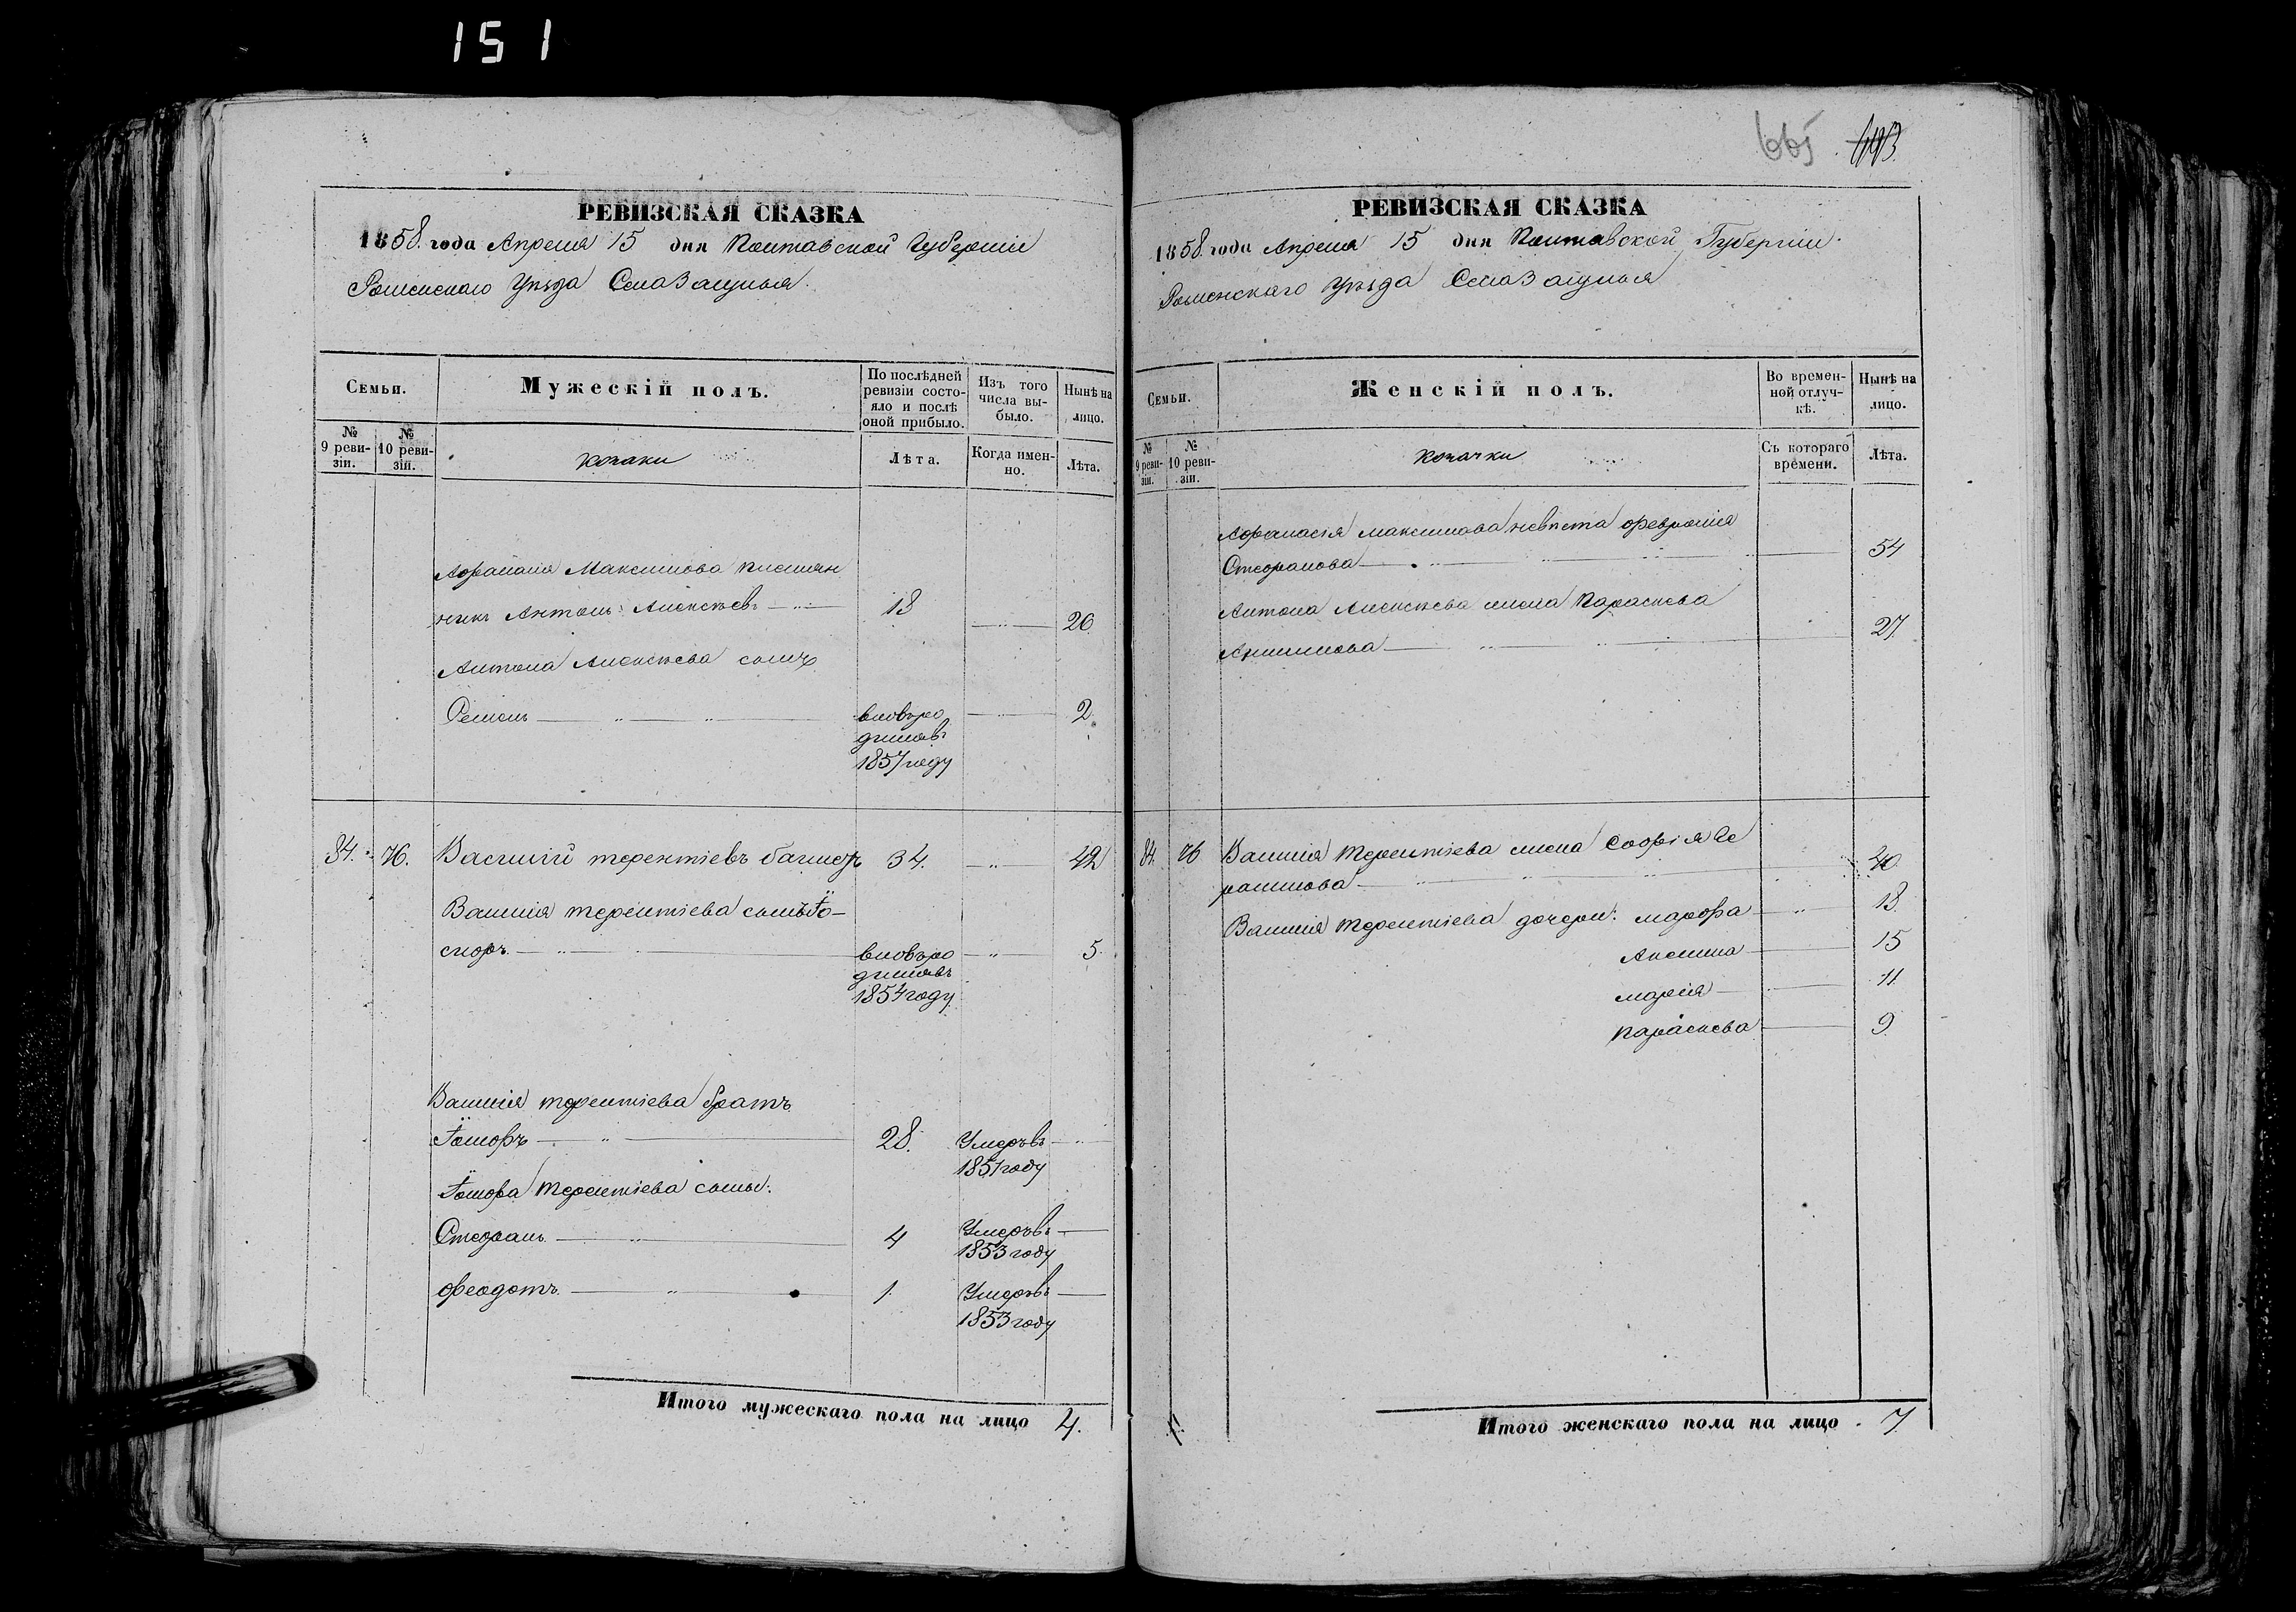 151
РЕВИЗСКАЯ СКАЗКА
1858. года Апреля 15 дня Полтавской Губерніи
Роменскаго Уѣзда Села Заруцкя
Семьи.
Мужескій полъ.
По послѣдней ревизіи состояло и послѣ оной прибыло.
Изъ того числа выбыло.
Нынѣ на лицо.
№ 9 ревизіи.
№ 10 ревизіи.
козаки
Лѣта.
Когда именно.
Лѣта.
Афанасія Максимова племян
никъ Антонъ Алексѣевъ 18 26
Антона Алексѣева сынъ
Семенъ вновьро 2.
дилсявъ
1857 году
84. 76. Василій терентіевъ 34. 42
Василія терентіева сынъ Іо
сифъ вновьро 5.
дилсявъ
1854 году
Василія терентіева братъ
28. Умеръвъ
1851 году
Терентіева сыны:
Стефанъ 4 Умеръвъ
1853 году
феодотъ 1. Умеръвъ
1853 году
Итого мужескаго пола на лицо 4.
665 693
РЕВИЗСКАЯ СКАЗКА
1858. года Апреля 15 дня Полтавской Губерніи.
Роменскаго Уѣзда Села
Семьи.
Женскій полъ.
Во временной отлучкѣ.
Нынѣ на лицо.
№ 9 ревизіи.
№ 10 ревизіи.
козачки
Съ котораго времени.
Лѣта.
Афанасія максимова невѣста февронія
Стефанова 54
Антона Алексѣева жена Параскева
27.
84. 76 Василія Терентіева жена Софія Ге
расимова 40.
Василія Терентіева дочери: марфа 18.
Акелина 15
марія 11.
параскева 9.
Итого женскаго пола на лицо 7